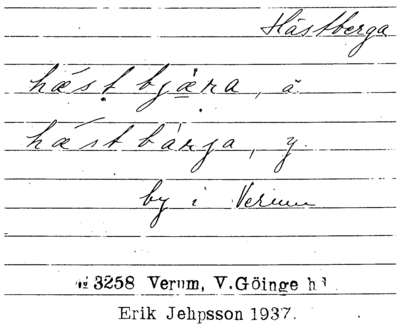 Hästberga
hæst bjæra, ä
hæst bärja, y
by i Verum
3258 Verum, V.Göinge hd
Erik Jehpsson 1937.